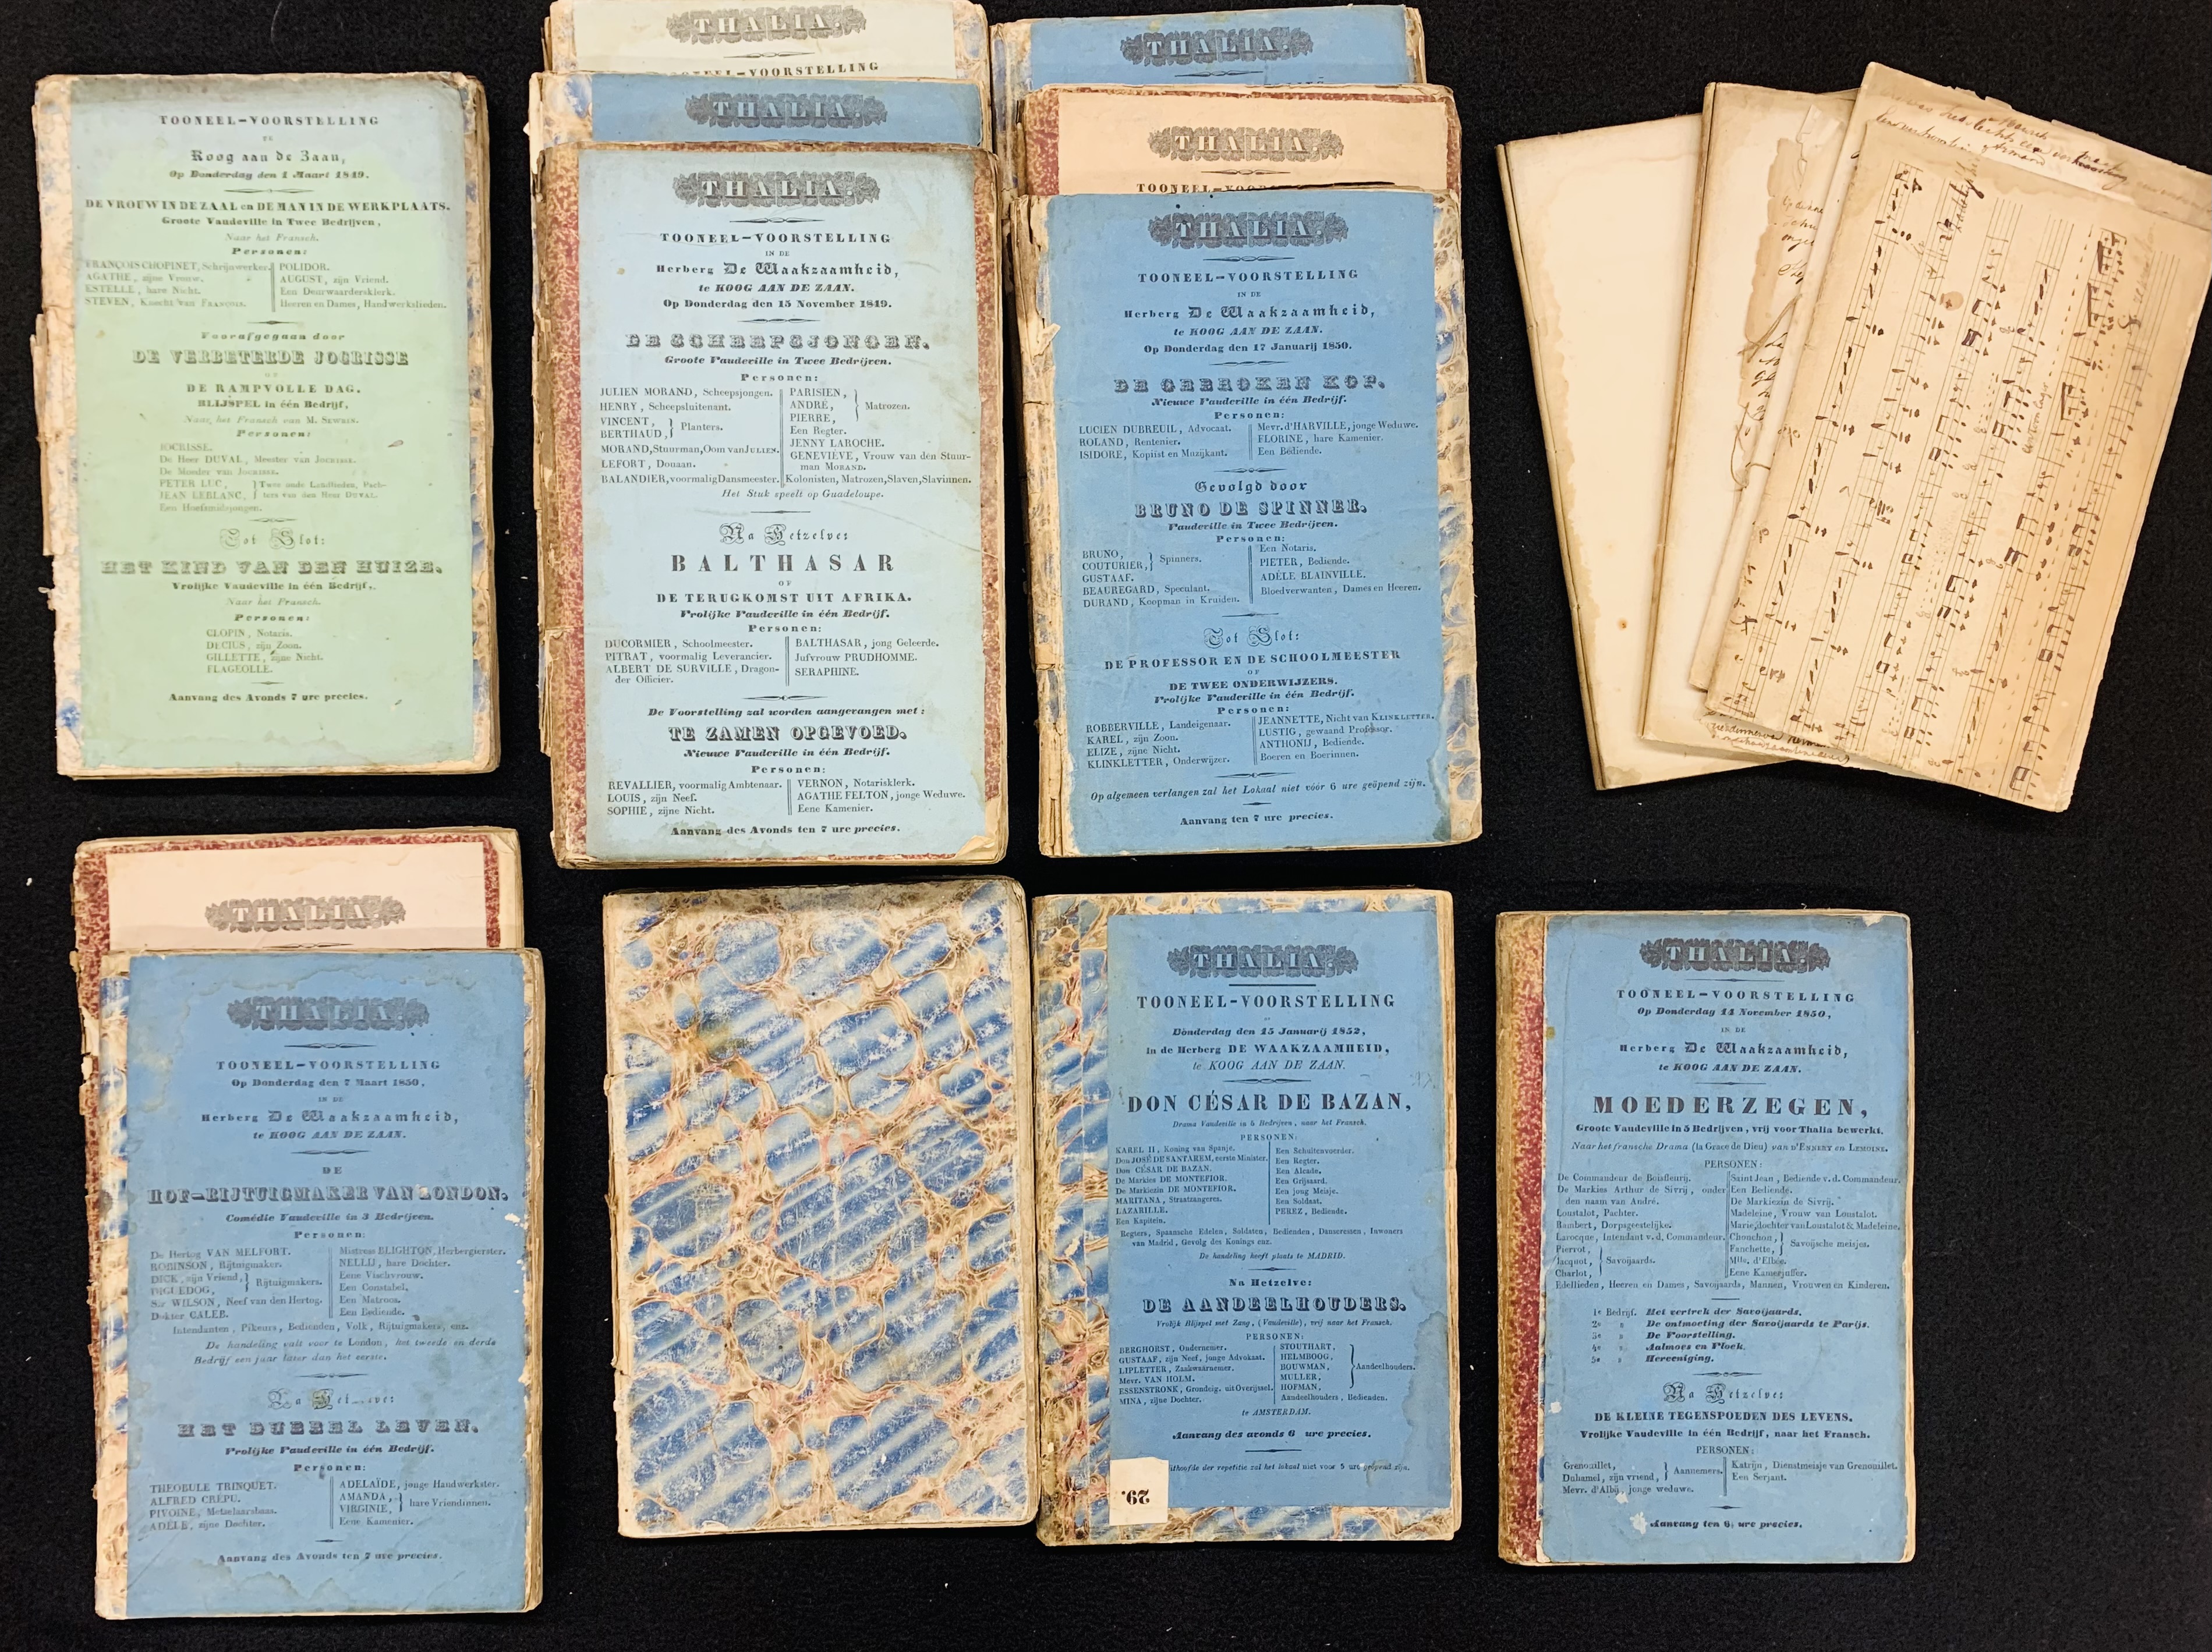 TOONEEL-VOORSTELLING
TE
Koog aan de Zaan,
Op Donderdag den 1 Maart 1849.
DE VROUW IN DE ZAAL en DE MAN IN DE WERKPLAATS.
Groote Vaudeville in Twee Bedrijven,
Naar het Fransch.
Personen:
FRANÇOIS CHOPINET, Schrijnwerker.
AGATHE, zijne Vrouw.
ESTELLE, hare Nicht.
STEVEN, Knecht van FRANÇOIS.
POLIDOR.
AUGUST, zijn Vriend.
Een Deurwaardersklerk.
Heeren en Dames, Handwerkslieden.
Voorafgegaan door
DE VERBETERDE JOCRISSE
OF
DE RAMPVOLLE DAG.
BLIJSPEL in één Bedrijf,
Naar het Fransch van M. SEWRIN.
Personen:
JOCRISSE.
De Heer DUVAL, Meester van JOCRISSE.
De Moeder van JOCRISSE.
PETER LUC,
JEAN LEBLANC,
} Twee oude Landlieden, Pach-
ters van den Heer DUVAL.
Een Hoefsmidsjongen.
Tot Slot:
HET KIND VAN DEN HUIZE.
Vrolijke Vaudeville in één Bedrijf,
Naar het Fransch.
Personen:
CLOPIN, Notaris.
DECIUS, zijn Zoon.
GILLETTE, zijne Nicht.
FLAGEOLLE.
Aanvang des Avonds 7 ure precies.
THALIA.
TOONEEL-VOORSTELLING
THALIA.
THALIA.
TOONEEL-VOORSTELLING
IN DE
Herberg De Waakzaamheid,
te KOOG AAN DE ZAAN.
Op Donderdag den 15 November 1849.
DE SCHEEPSJONGEN.
Groote Vaudeville in Twee Bedrijven.
Personen:
JULIEN MORAND, Scheepsjongen.
HENRY, Scheepsluitenant.
VINCENT,
BERTHAUD,
} Planters.
MORAND, Stuurman, Oom van JULIEN.
LEFORT, Douaan.
BALANDIER, voormalig Dansmeester.
PARISIEN,
ANDRÉ,
PIERRE,
} Matrozen.
Een Regter.
JENNY LAROCHE.
GENEVIÈVE, Vrouw van den Stuur-
man MORAND.
Kolonisten, Matrozen, Slaven, Slavinnen.
Het Stuk speelt op Guadeloupe.
Na Hetzelve:
BALTHASAR
OF
DE TERUGKOMST UIT AFRIKA.
Vrolijke Vaudeville in één Bedrijf.
Personen:
DUCORMIER, Schoolmeester.
PITRAT, voormalig Leverancier.
ALBERT DE SURVILLE, Dragon-
der Officier.
BALTHASAR, jong Geleerde.
Jufvrouw PRUDHOMME.
SERAPHINE.
De Voorstelling zal worden aangevangen met:
TE ZAMEN OPGEVOED.
Nieuwe Vaudeville in één Bedrijf.
Personen:
REVALLIER, voormalig Ambtenaar.
LOUIS, zijn Neef.
SOPHIE, zijne Nicht.
VERNON, Notarisklerk.
AGATHE FELTON, jonge Weduwe.
Eene Kamenier.
Aanvang des Avonds ten 7 ure precies.
THALIA.
THALIA.
THALIA.
TOONEEL-VOORSTELLING
IN DE
Herberg De Waakzaamheid,
te KOOG AAN DE ZAAN.
Op Donderdag den 17 Januarij 1850.
DE GEBROKEN KOP.
Nieuwe Vaudeville in één Bedrijf.
Personen:
LUCIEN DUBREUIL, Advocaat.
ROLAND, Rentenier.
ISIDORE, Kopiist en Muzijkant.
Mevr. d'HARVILLE, jonge Weduwe.
FLORINE, hare Kamenier.
Een Bediende.
Gevolgd door
BRUNO DE SPINNER.
Vaudeville in Twee Bedrijven.
Personen:
BRUNO,
COUTURIER,
} Spinners.
GUSTAAF.
BEAUREGARD, Speculant.
DURAND, Koopman in Kruiden.
Een Notaris.
PIETER, Bediende.
ADÈLE BLAINVILLE.
Bloedverwanten, Dames en Heeren.
Tot Slot:
DE PROFESSOR EN DE SCHOOLMEESTER
OF
DE TWEE ONDERWIJZERS.
Vrolijke Vaudeville in één Bedrijf.
Personen:
ROBBERVILLE, Landeigenaar.
KAREL, zijn Zoon.
ELIZE, zijne Nicht.
KLINKLETTER, Onderwijzer.
JEANNETTE, Nicht van KLINKLETTER.
LUSTIG, gewaand Professor.
ANTHONIJ, Bediende.
Boeren en Boerinnen.
Op algemeen verlangen zal het Lokaal niet vóór 6 ure geöpend zijn.
Aanvang ten 7 ure precies.
THALIA.
THALIA.
TOONEEL-VOORSTELLING
Op Donderdag den 7 Maart 1850,
IN DE
Herberg De Waakzaamheid,
te KOOG AAN DE ZAAN.
DE
HOF-RIJTUIGMAKER VAN LONDON.
Comédie Vaudeville in 3 Bedrijven.
Personen:
De Hertog VAN MELFORT.
ROBINSON, Rijtuigmaker.
DICK, zijn Vriend,
DIGUEDOG,
} Rijtuigmakers.
Sir WILSON, Neef van den Hertog.
Dokter CALEB.
Mistress BLIGHTON, Herbergierster.
NELLIJ, hare Dochter.
Eene Vischvrouw.
Een Constabel.
Een Matroos.
Een Bediende.
Intendanten, Pikeurs, Bedienden, Volk, Rijtuigmakers, enz.
De handeling valt voor te London, het tweede en derde
Bedrijf een jaar later dan het eerste.
Na
HET DUBBEL LEVEN.
Vrolijke Vaudeville in één Bedrijf.
Personen:
THEOBULE TRINQUET.
ALFRED CRÉPU.
PIVOINE, Metselaarsbaas.
ADÈLE, zijne Dochter.
ADELAÏDE, jonge Handwerkster.
AMANDA,
VIRGINIE,
} hare Vriendinnen.
Eene Kamenier.
Aanvang des Avonds ten 7 ure precies.
THALIA.
TOONEEL-VOORSTELLING
Donderdag den 15 Januarij 1852,
in de Herberg DE WAAKZAAMHEID,
te KOOG AAN DE ZAAN.
DON CÉSAR DE BAZAN,
Drama Vaudeville in 5 Bedrijven, naar het Fransch.
PERSONEN:
KAREL II, Koning van Spanje.
Don JOSÉ DE SANTAREM, eerste Minister.
Don CÉSAR DE BAZAN.
De Markies DE MONTEFIOR.
De Markiezin DE MONTEFIOR.
MARITANA, Straatzangeres.
LAZARILLE.
Een Kapitein.
Een Schuitenvoerder.
Een Regter.
Een Alcade.
Een Grijsaard.
Een jong Meisje.
Een Soldaat.
PEREZ, Bediende.
Regters, Spaansche Edelen, Soldaten, Bedienden, Danseressen, Inwoners
van Madrid, Gevolg des Konings enz.
De handeling heeft plaats te MADRID.
Na Hetzelve:
DE AANDEELHOUDERS.
Vrolijk Blijspel met Zang, (Vaudeville), vrij naar het Fransch.
PERSONEN:
BERGHORST, Ondernemer.
GUSTAAF, zijn Neef, jonge Advokaat.
LIPLETTER, Zaakwaarnemer.
Mevr. VAN HOLM.
ESSENSTRONK, Grondeig. uit Overijssel.
MINA, zijne Dochter.
STOUTHART,
HELMBOOG,
BOUWMAN,
MULLER,
HOFMAN,
} Aandeelhouders.
Aandeelhouders, Bedienden.
te AMSTERDAM.
Aanvang des avonds 6 ure precies.
uithoofde der repetitie zal het lokaal niet voor 5 ure geöpend zijn.
29.
THALIA.
TOONEEL-VOORSTELLING
Op Donderdag 14 November 1850,
IN DE
Herberg De Waakzaamheid,
te KOOG AAN DE ZAAN.
MOEDERZEGEN,
Groote Vaudeville in 5 Bedrijven, vrij voor Thalia bewerkt.
Naar het fransche Drama (la Grace de Dieu) van D'ENNERY en LEMOINE.
PERSONEN:
De Commandeur de Boisfleurij.
De Markies Arthur de Sivrij, onder
den naam van André.
Loustalot, Pachter.
Bambert, Dorpsgeestelijke.
Larocque, Intendant v.d. Commandeur.
Piervot,
Jacquot,
Charlot,
} Savoijaards.
Saint Jean, Bediende v.d. Commandeur.
Een Bediende.
De Markiezin de Sivrij.
Madeleine, Vrouw van Loustalot.
Marie, dochter van Loustalot & Madeleine.
Chonchon,
Fanchette,
} Savoijsche meisjes.
Mlle. d'Elbée.
Eene Kamerjuffer.
Edellieden, Heeren en Dames, Savoijaards, Mannen, Vrouwen en Kinderen.
1e Bedrijf. Het vertrek der Savoijaards.
2e " De ontmoeting der Savoijaards te Parijs.
3e " De Voorstelling.
4e " Aalmoes en Vloek.
5e " Hereeniging.
Na Hetzelve:
DE KLEINE TEGENSPOEDEN DES LEVENS.
Vrolijke Vaudeville in één Bedrijf, naar het Fransch.
PERSONEN:
Grenouillet,
Duhamel, zijn vriend,
} Aannemers.
Mevr. d'Albij, jonge weduwe.
Katrijn, Dienstmeisje van Grenouillet.
Een Serjant.
Aanvang ten 6½ ure precies.